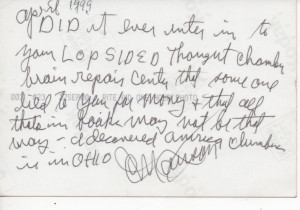 april 1999
DID it ever inter in to
your LOPSIDED Thought chamber
brain repair center that some one
lied to you for money + that all
thats in books may not be that
way – discovered america
is in OHIO